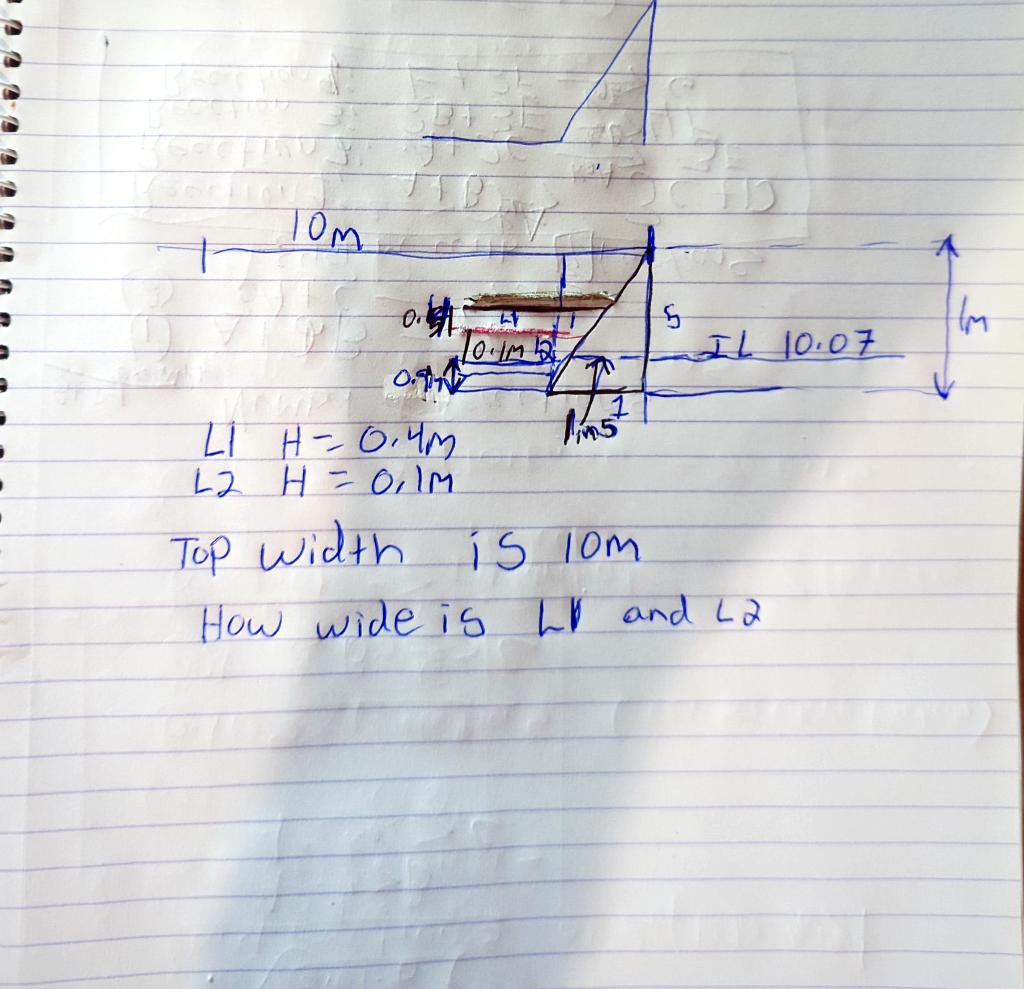 10m
L1
5
1m
10.1m L2
IL 10.07
1
L1 H = 0.4m
L2 H = 0.1m
Top width is 10m
How wide is L1 and L2